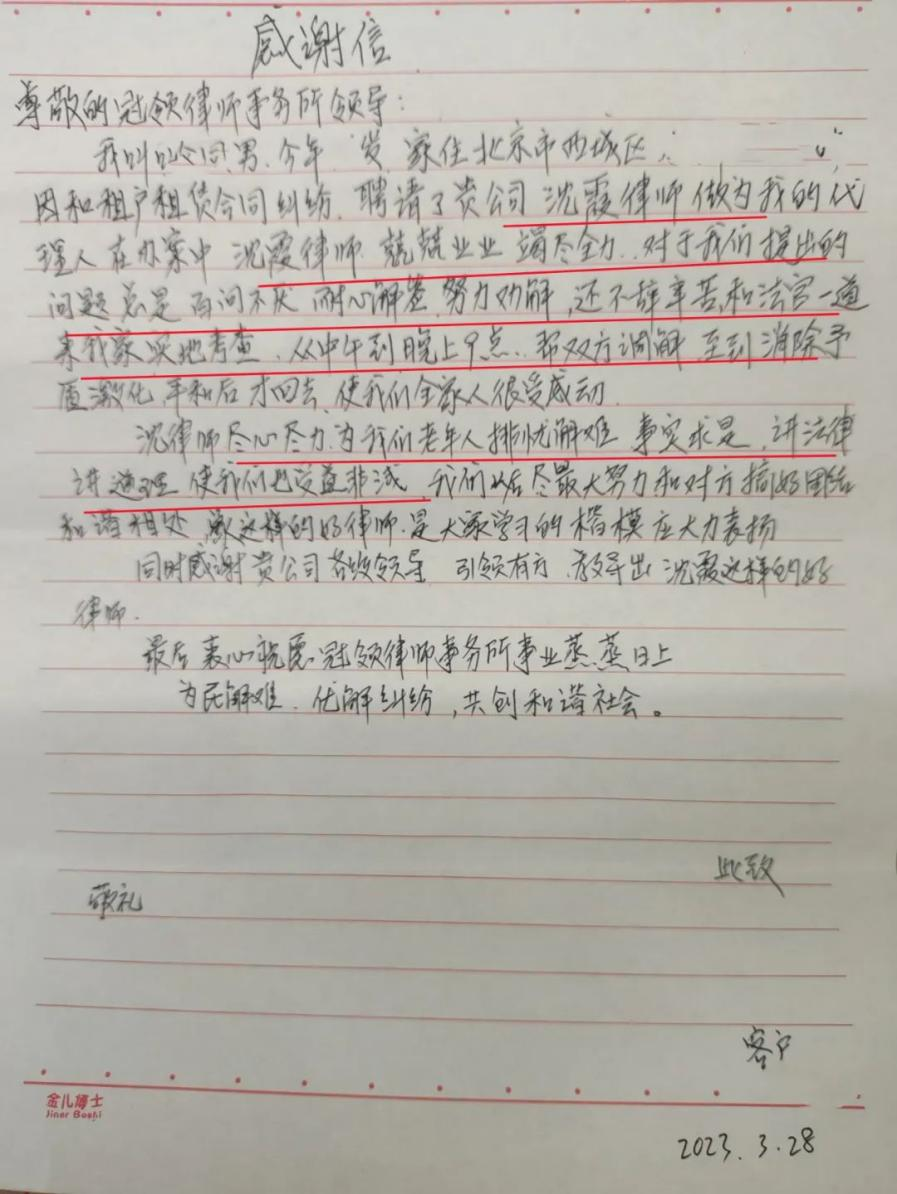 感谢信
尊敬的冠领律师事务所领导：
我叫 同，男，今年 岁 家住北京市西城区，
因和租户租赁合同纠纷，聘请了贵公司沈霞律师做为我的代
理人在办案中沈霞律师兢兢业业竭尽全力，对于我们提出的
问题总是百问不厌 耐心解答，努力劝解，还不辞辛苦和法官一道
来我家实地考查，从中午到晚上9点，帮双方调解，至到消除矛
盾激化 平和后才回去，使我们全家人很受感动
沈律师尽心尽力，为我们老年人排忧解难 事实求是，讲法律
讲道理 使我们也受益非浅，我们以后尽最大努力和对方搞好团结
和谐相处，这样的好律师，是大家学习的楷模应大力表扬
同时感谢贵公司各级领导 引领有方，教导出沈霞这样的好
律师.
最后衷心祝愿冠领律师事务所事业蒸蒸日上
为民解难，化解纠纷，共创和谐社会。
此致
敬礼
客户
金儿博士
Jiner Boshi
2023.3.28